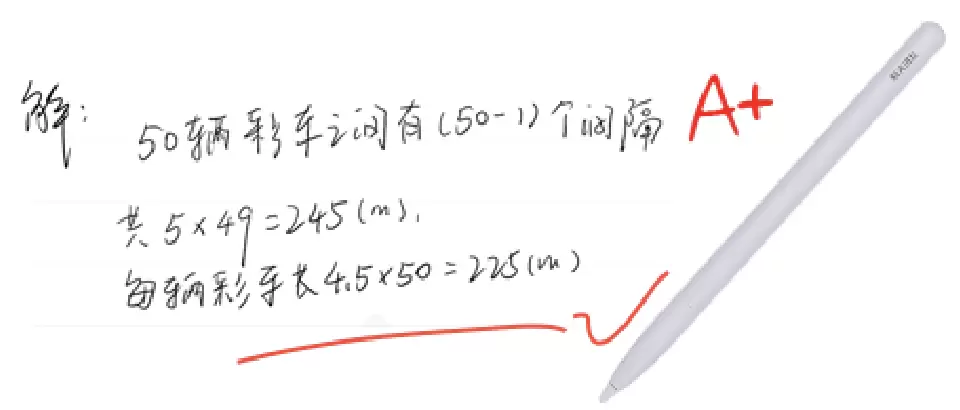 解：
50辆彩车之间有(50-1)个间隔
A+
共5×49=245(m).
每辆彩车长4.5×50=225(m)